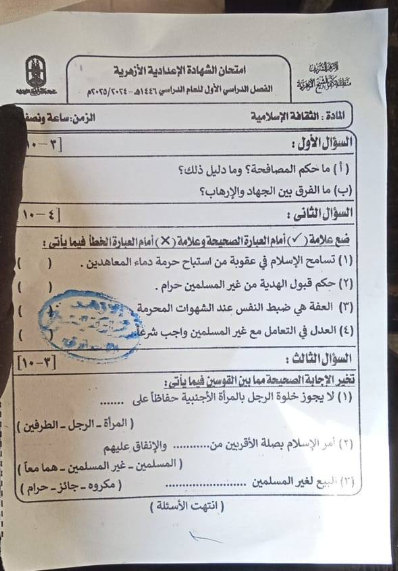 امتحان الشهادة الإعدادية الأزهرية
الفصل الدراسي الأول للعام الدراسي ١٤٤٦هـ - ٢٠٢٤/٢٠٢٥م
المادة : الثقافة الإسلامية
الزمن: ساعة ونصف
السؤال الأول :
[٣ – ١٠
(أ) ما حكم المصافحة؟ وما دليل ذلك؟
(ب) ما الفرق بين الجهاد والإرهاب؟
السؤال الثاني :
[٤ – ١٠
ضع علامة (✓) أمام العبارة الصحيحة وعلامة (✗) أمام العبارة الخطأ فيما يأتي :
(١) تسامح الإسلام في عقوبة من استباح حرمة دماء المعاهدين . ( )
(٢) حكم قبول الهدية من غير المسلمين حرام . ( )
(٣) العفة هي ضبط النفس عند الشهوات المحرمة ( )
(٤) العدل في التعامل مع غير المسلمين واجب شرعا ( )
السؤال الثالث :
[٣ – ١٠]
تخير الإجابة الصحيحة مما بين القوسين فيما يأتي :
(١) لا يجوز خلوة الرجل بالمرأة الأجنبية حفاظاً على .......
( المرأة – الرجل – الطرفين )
(٢) أمر الإسلام بصلة الأقربين من........... والإنفاق عليهم
( المسلمين – غير المسلمين – هما معاً )
(٣) البيع لغير المسلمين ........................
( مكروه – جائز – حرام )
( انتهت الأسئلة )